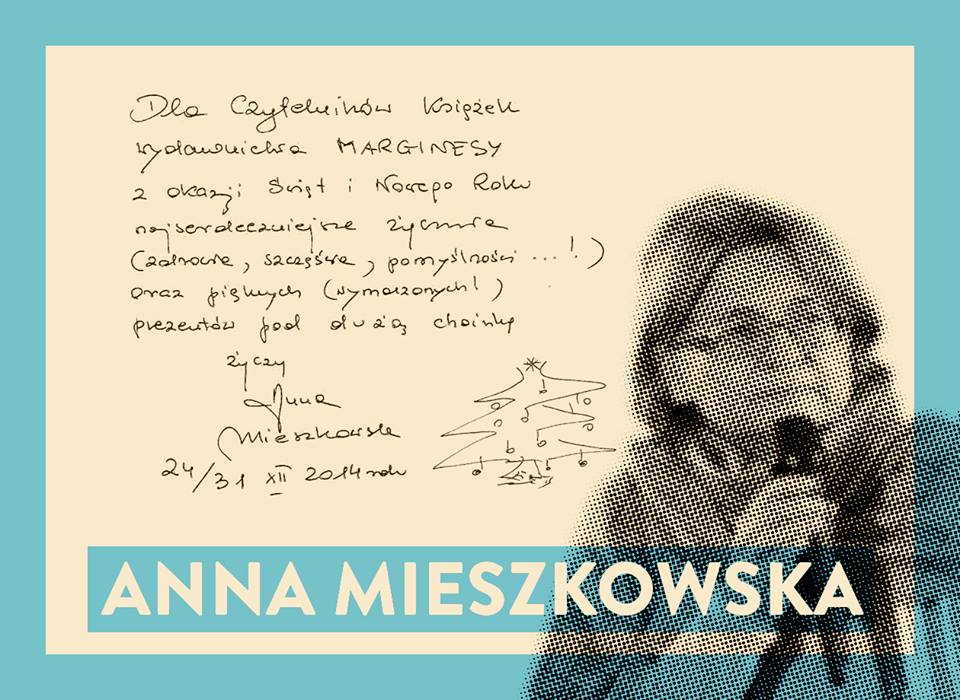 Dla Czytelników Książek
wydawnictwa MARGINESY
z okazji Świąt i Nowego Roku
najserdeczniejsze życzenia
(zdrowia, szczęścia, pomyślności ...!)
oraz pięknych (wymarzonych!)
prezentów pod dużą choinkę
życzy
Anna
Mieszkowska
24/31 XII 2014 roku
ANNA MIESZKOWSKA